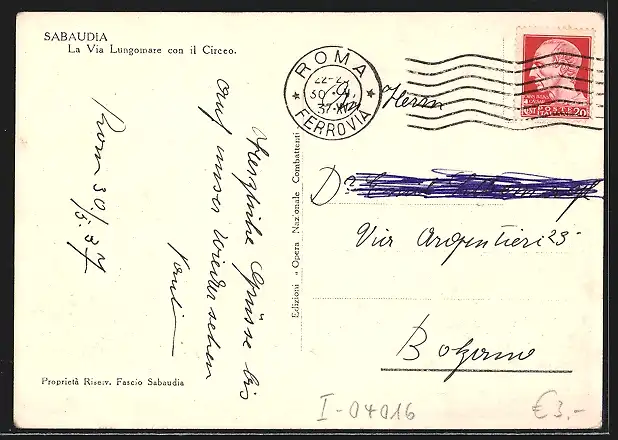 SABAUDIA
La Via Lungomare con il Circeo.
ROMA
FERROVIA
22-23
30
37-XV
POSTE
ITALIANE
20
Herrn
Dr.
Via Argentieri 25
Bolzano
Rom 30./5.37
Herzliche Grüsse bis
auf unser Wiedersehen
Edizioni « Opera Nazionale Combattenti
Proprietà Riserv. Fascio Sabaudia
I-04016
€ 3.-